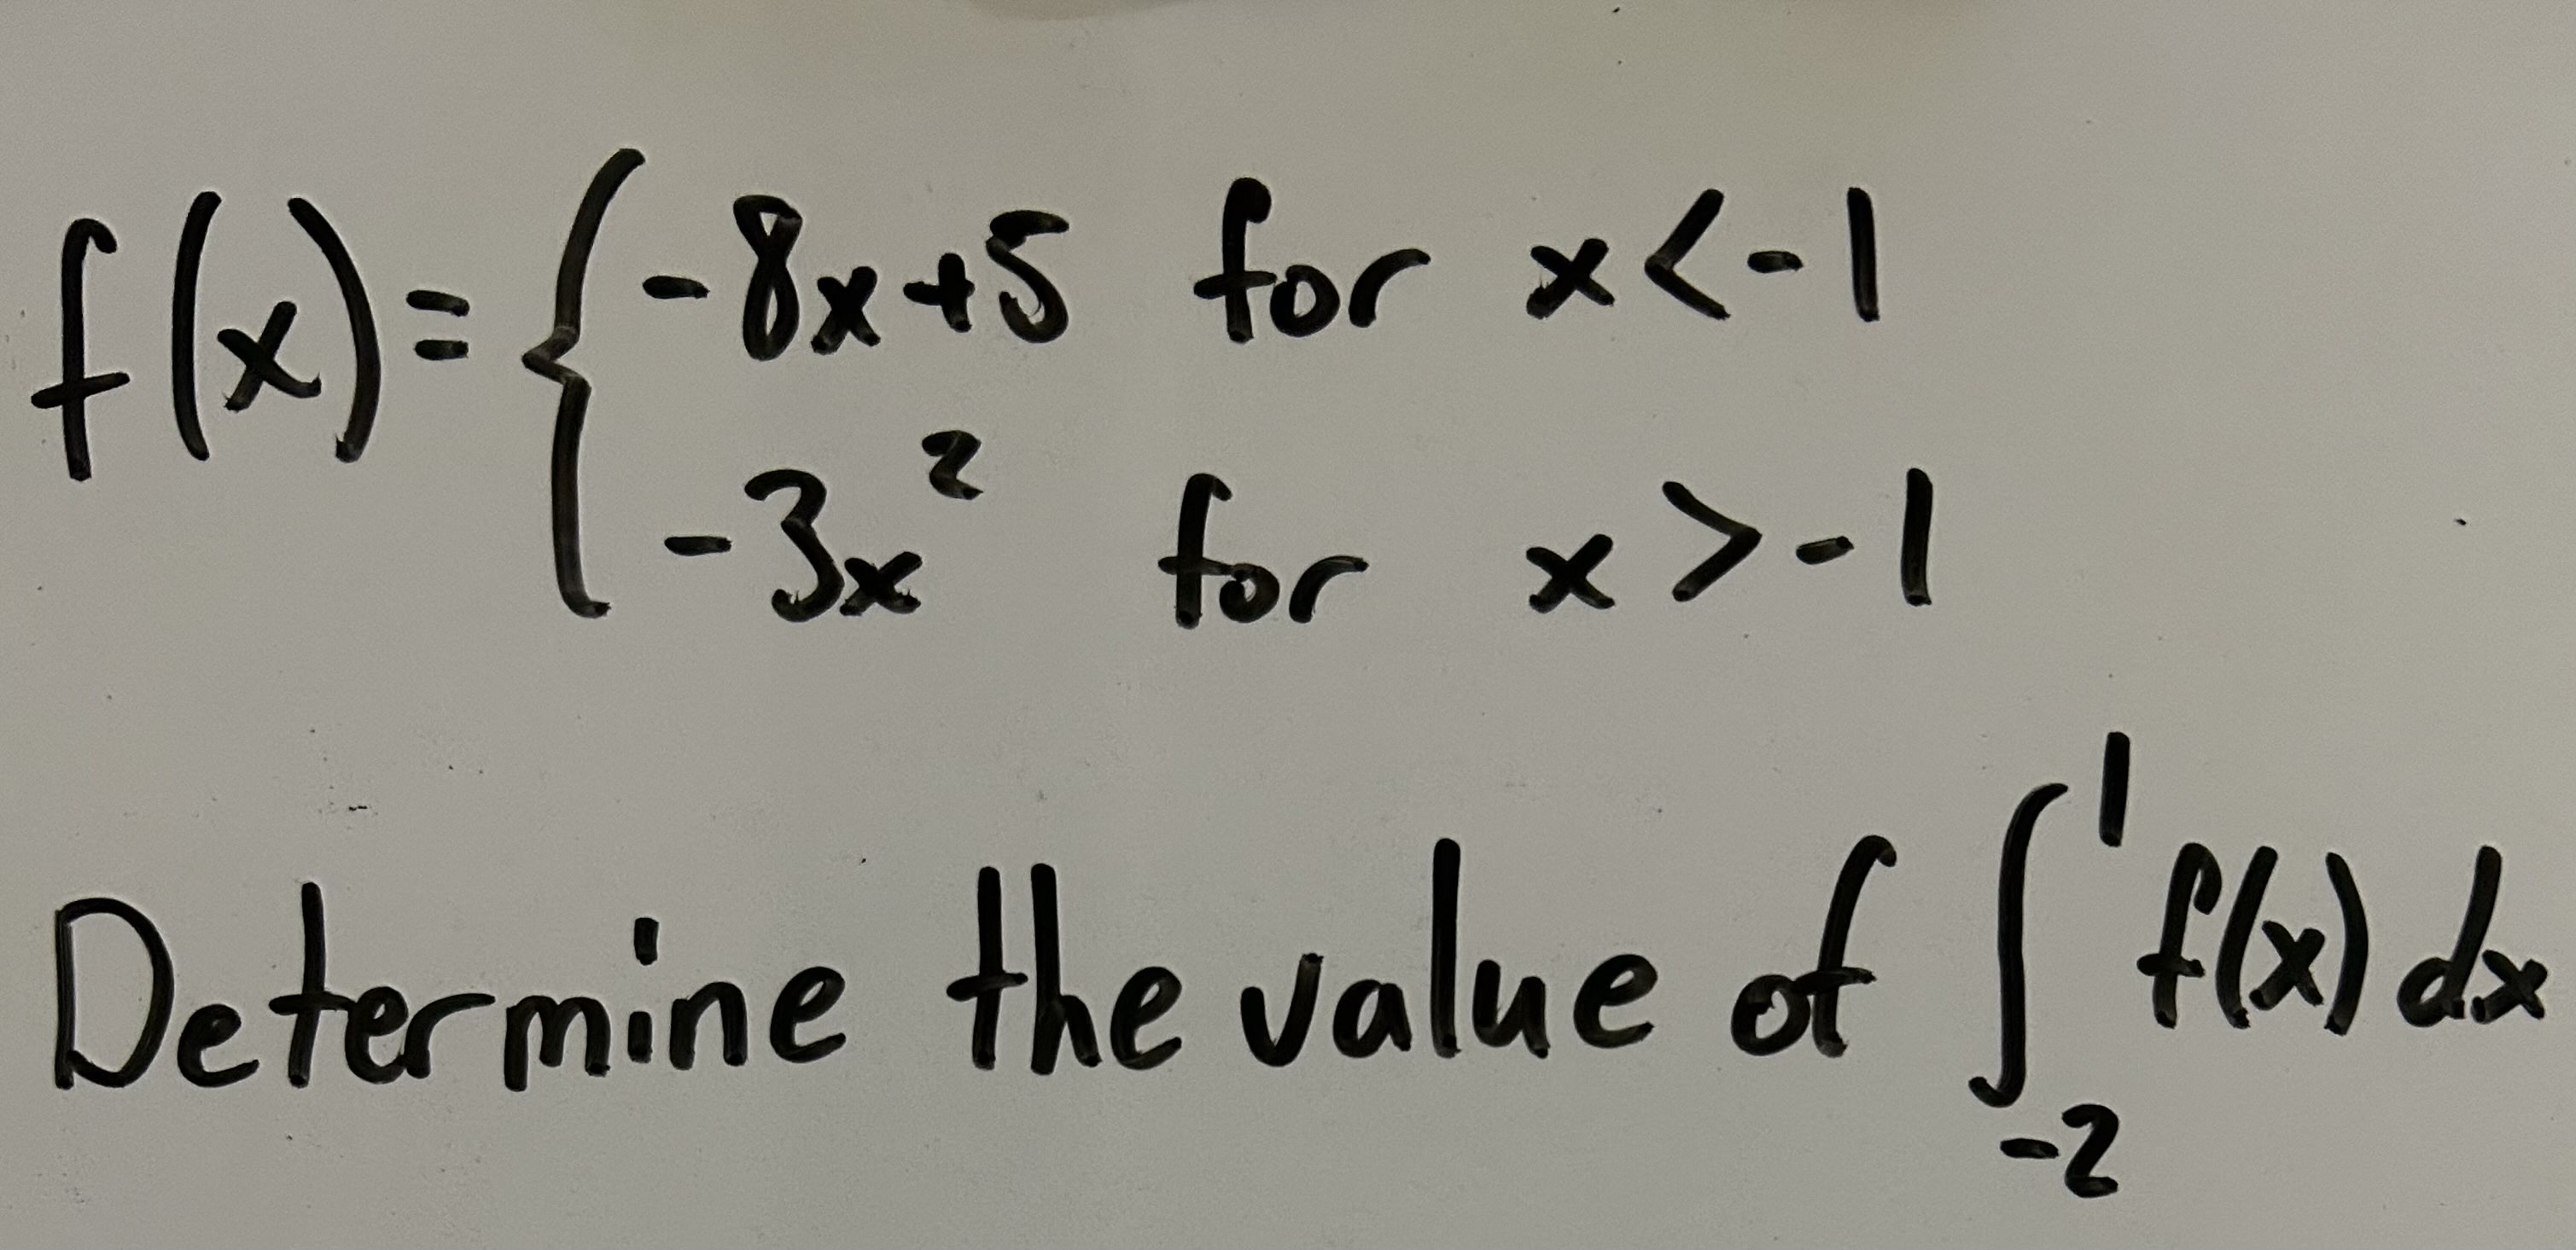 f(x)= { -8x+5 for x<-1
-3x² for x>-1
Determine the value of ∫₋₂¹ f(x) dx